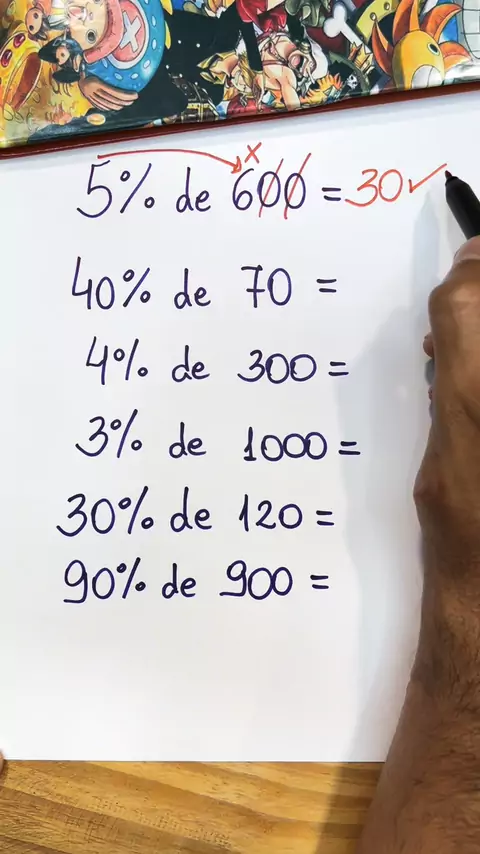 5% de 600 = 30 ✓
x
40% de 70 =
4% de 300 =
3% de 1000 =
30% de 120 =
90% de 900 =